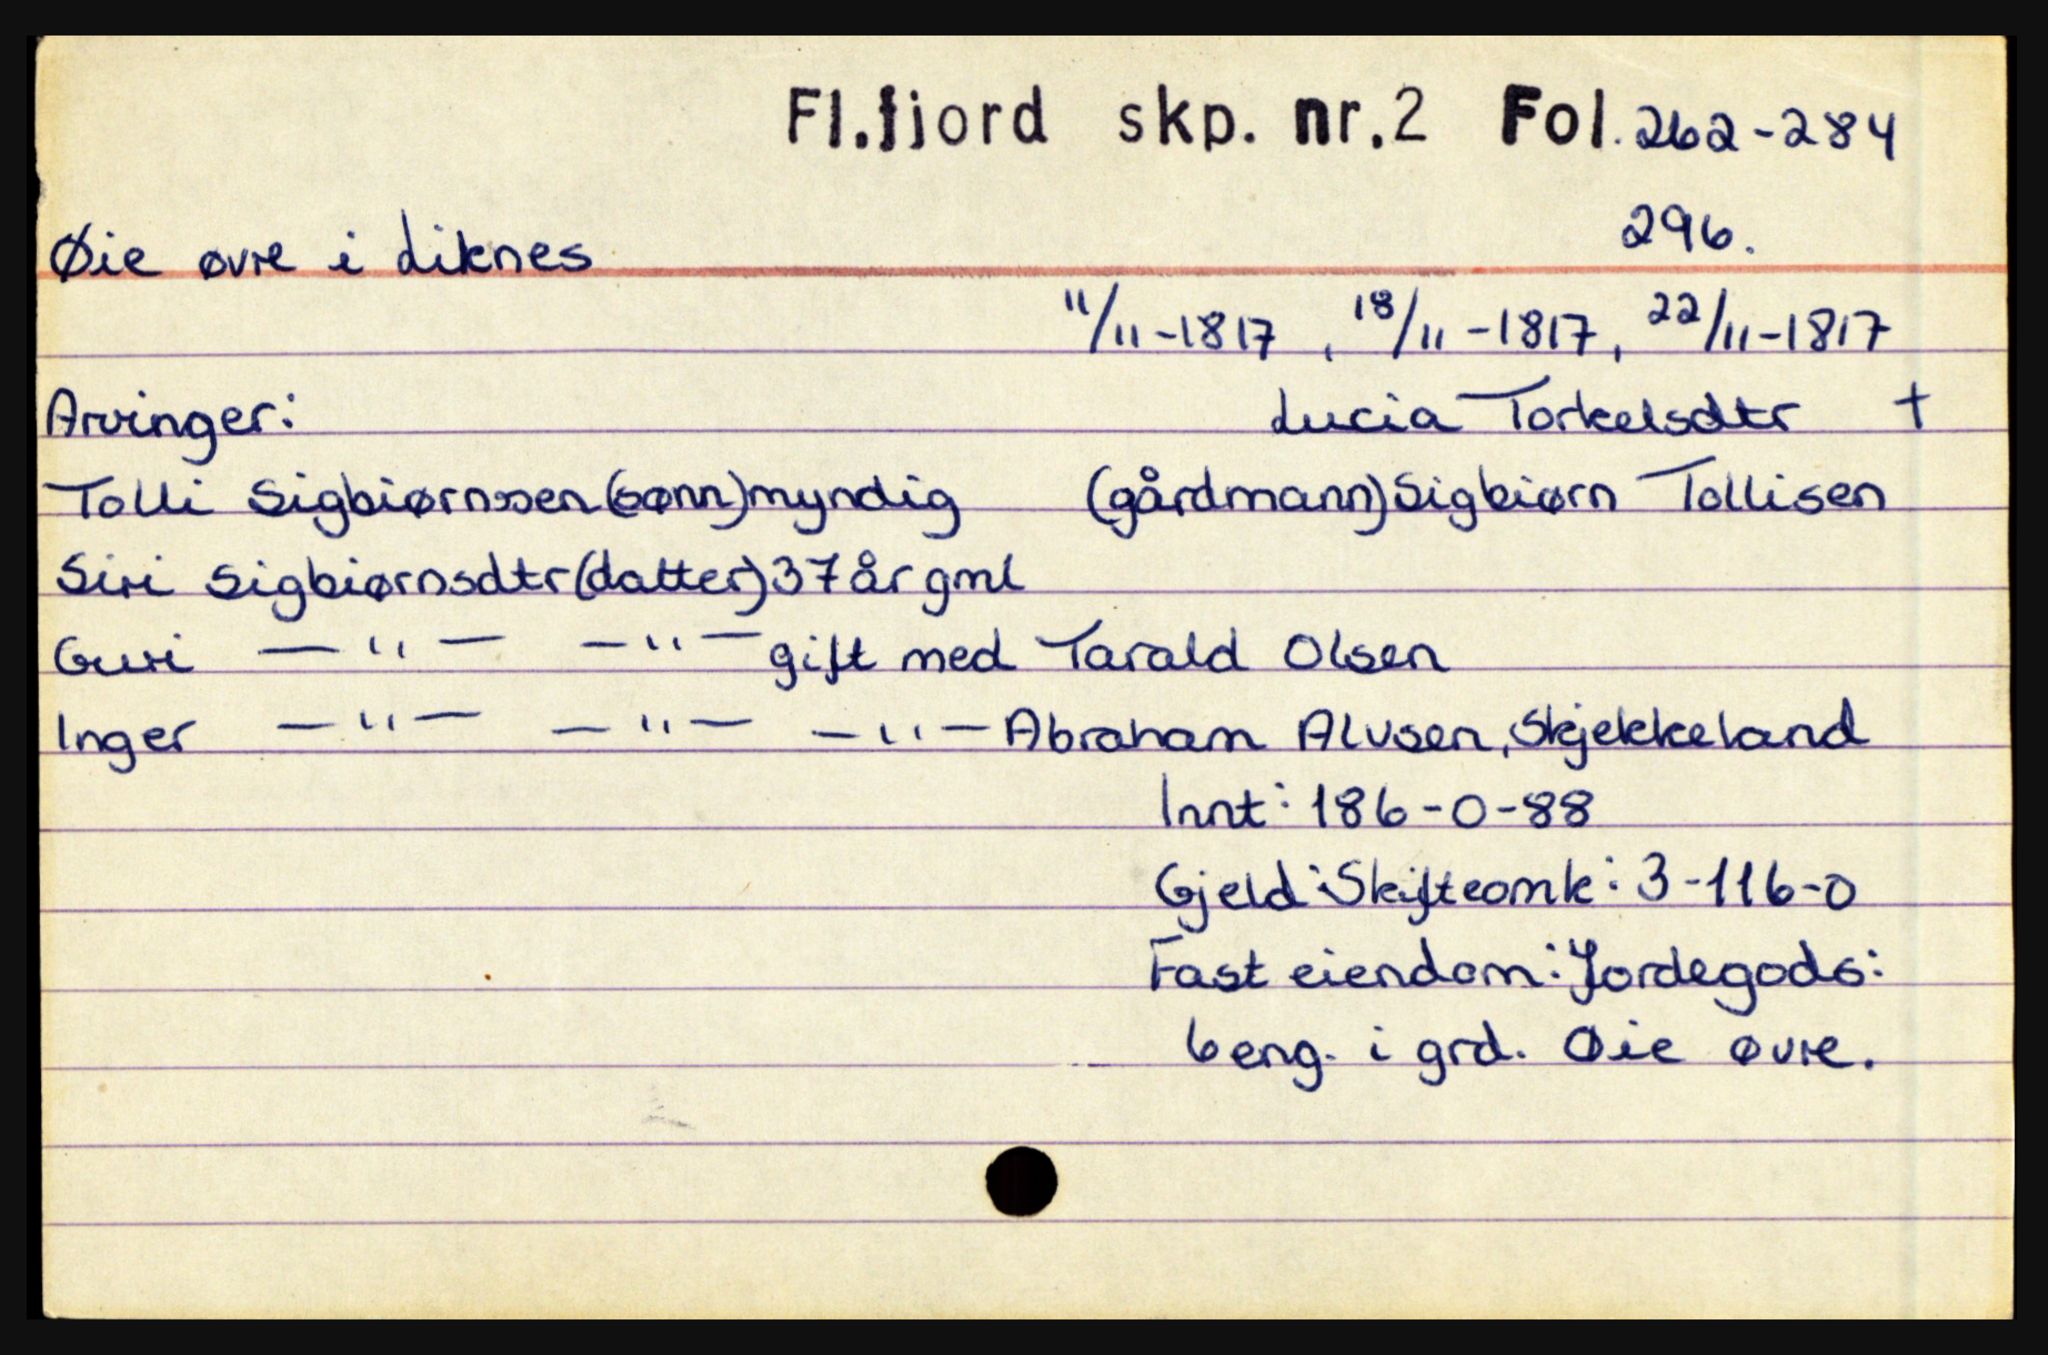 Fl.fjord skp. nr.2 Fol. 262-284
296.
Øie øvre i Liknes
11/11-1817, 18/11-1817, 22/11-1817
Arvinger: Lucia Torkelsdtr †
Tolli Sigbiørnssen (sønn) myndig (gårdmann) Sigbiørn Tollisen
Siri Sigbiørnsdtr (datter) 37 år gml
Guri —"— —"— gift med Tarald Olsen
Inger —"— —"— —"— Abraham Alvsen, Skjekkeland
Innt: 186-0-88
Gjeld: Skifteomk: 3-116-0
Fast eiendom: Jordegods:
6 eng. i grd. Øie øvre.